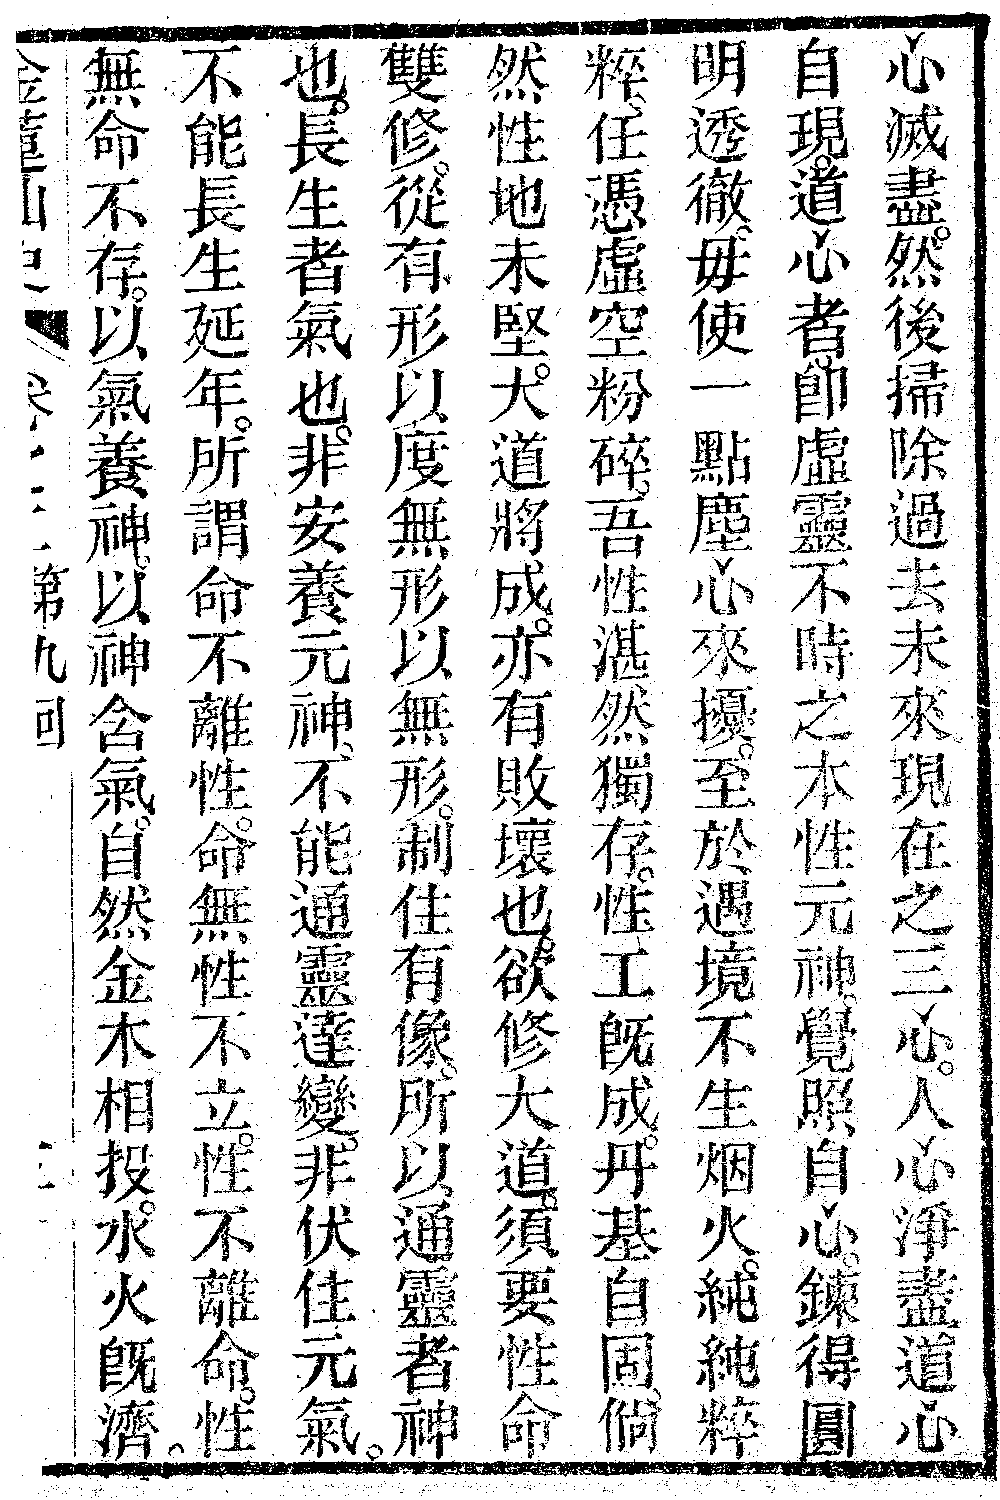 心滅盡。然後掃除過去未來現在之三心。人心淨盡道心
自現。道心者、卽虛靈不時之本性元神。覺照自心。鍊得圓
明透徹。毋使一點塵心來擾。至於遇境不生烟火。純純粹
粹。任憑虛空粉碎。吾性湛然獨存。性工旣成。丹基自固。倘
然性地未堅。大道將成。亦有敗壞也。欲修大道。須要性命
雙修。從有形以度無形以無形。制住有像。所以通靈者神
也。長生者氣也。非安養元神、不能通靈達變。非伏住元氣。
不能長生延年。所謂命不離性。命無性不立。性不離命。性
無命不存。以氣養神。以神含氣。自然金木相投。水火旣濟。
第九回